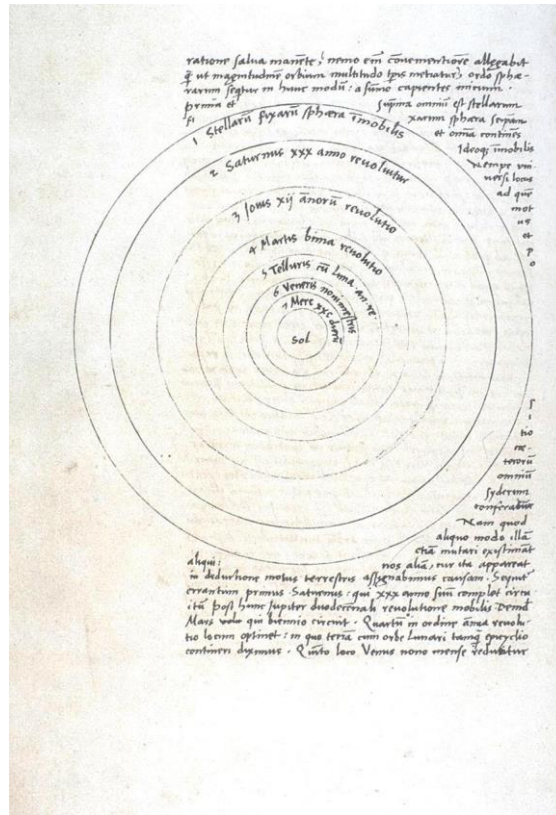 ratione salua manēte, nemo em̄ cōuenientiorē allegabit
q̄ ut magnitudinē orbium multitudo tp̄is metiatur, ordo sphæ-
rarum seqtur in hunc modū: a sūmo capientes initium.
prima et suprīa omniū est stellarum
fi xarum sphæra seipam
et oīnia continēs
Ideoqȝ īmobilis
Nempe uni
uersi locus
ad quē
mot
us
et
p
o
1 Stellarū fixarū sphæra īmobilis
2 Saturnus xxx anno reuoluitur
3 Iouis xij annorū reuolutio
4 Martis bima reuolutio
5 Telluris cū Luna an. re.
6 Veneris nonimestris
7 Merc xxc dierū
Sol
S
i
tio
cæ-
terorū
omniū
syderum
conferatur
Nam quod
aliquo modo illā
etiā mutari existimāt
aliqui: nos aliā, cur ita appareat
in deductione motus terrestris assignabimus causam. Sequit
errantium primus Saturnus: qui xxx anno suū complet circu-
itū post hunc Iupiter duodecennali reuolutione mobilis Demū
Mars qui biennio circuit. Quartū in ordine annua reuolu-
tio locum optinet: in quo terrā cum orbe Lunari tamq̄ epicyclo
contineri diximus. Quinto loco Venus nono mense reducitur